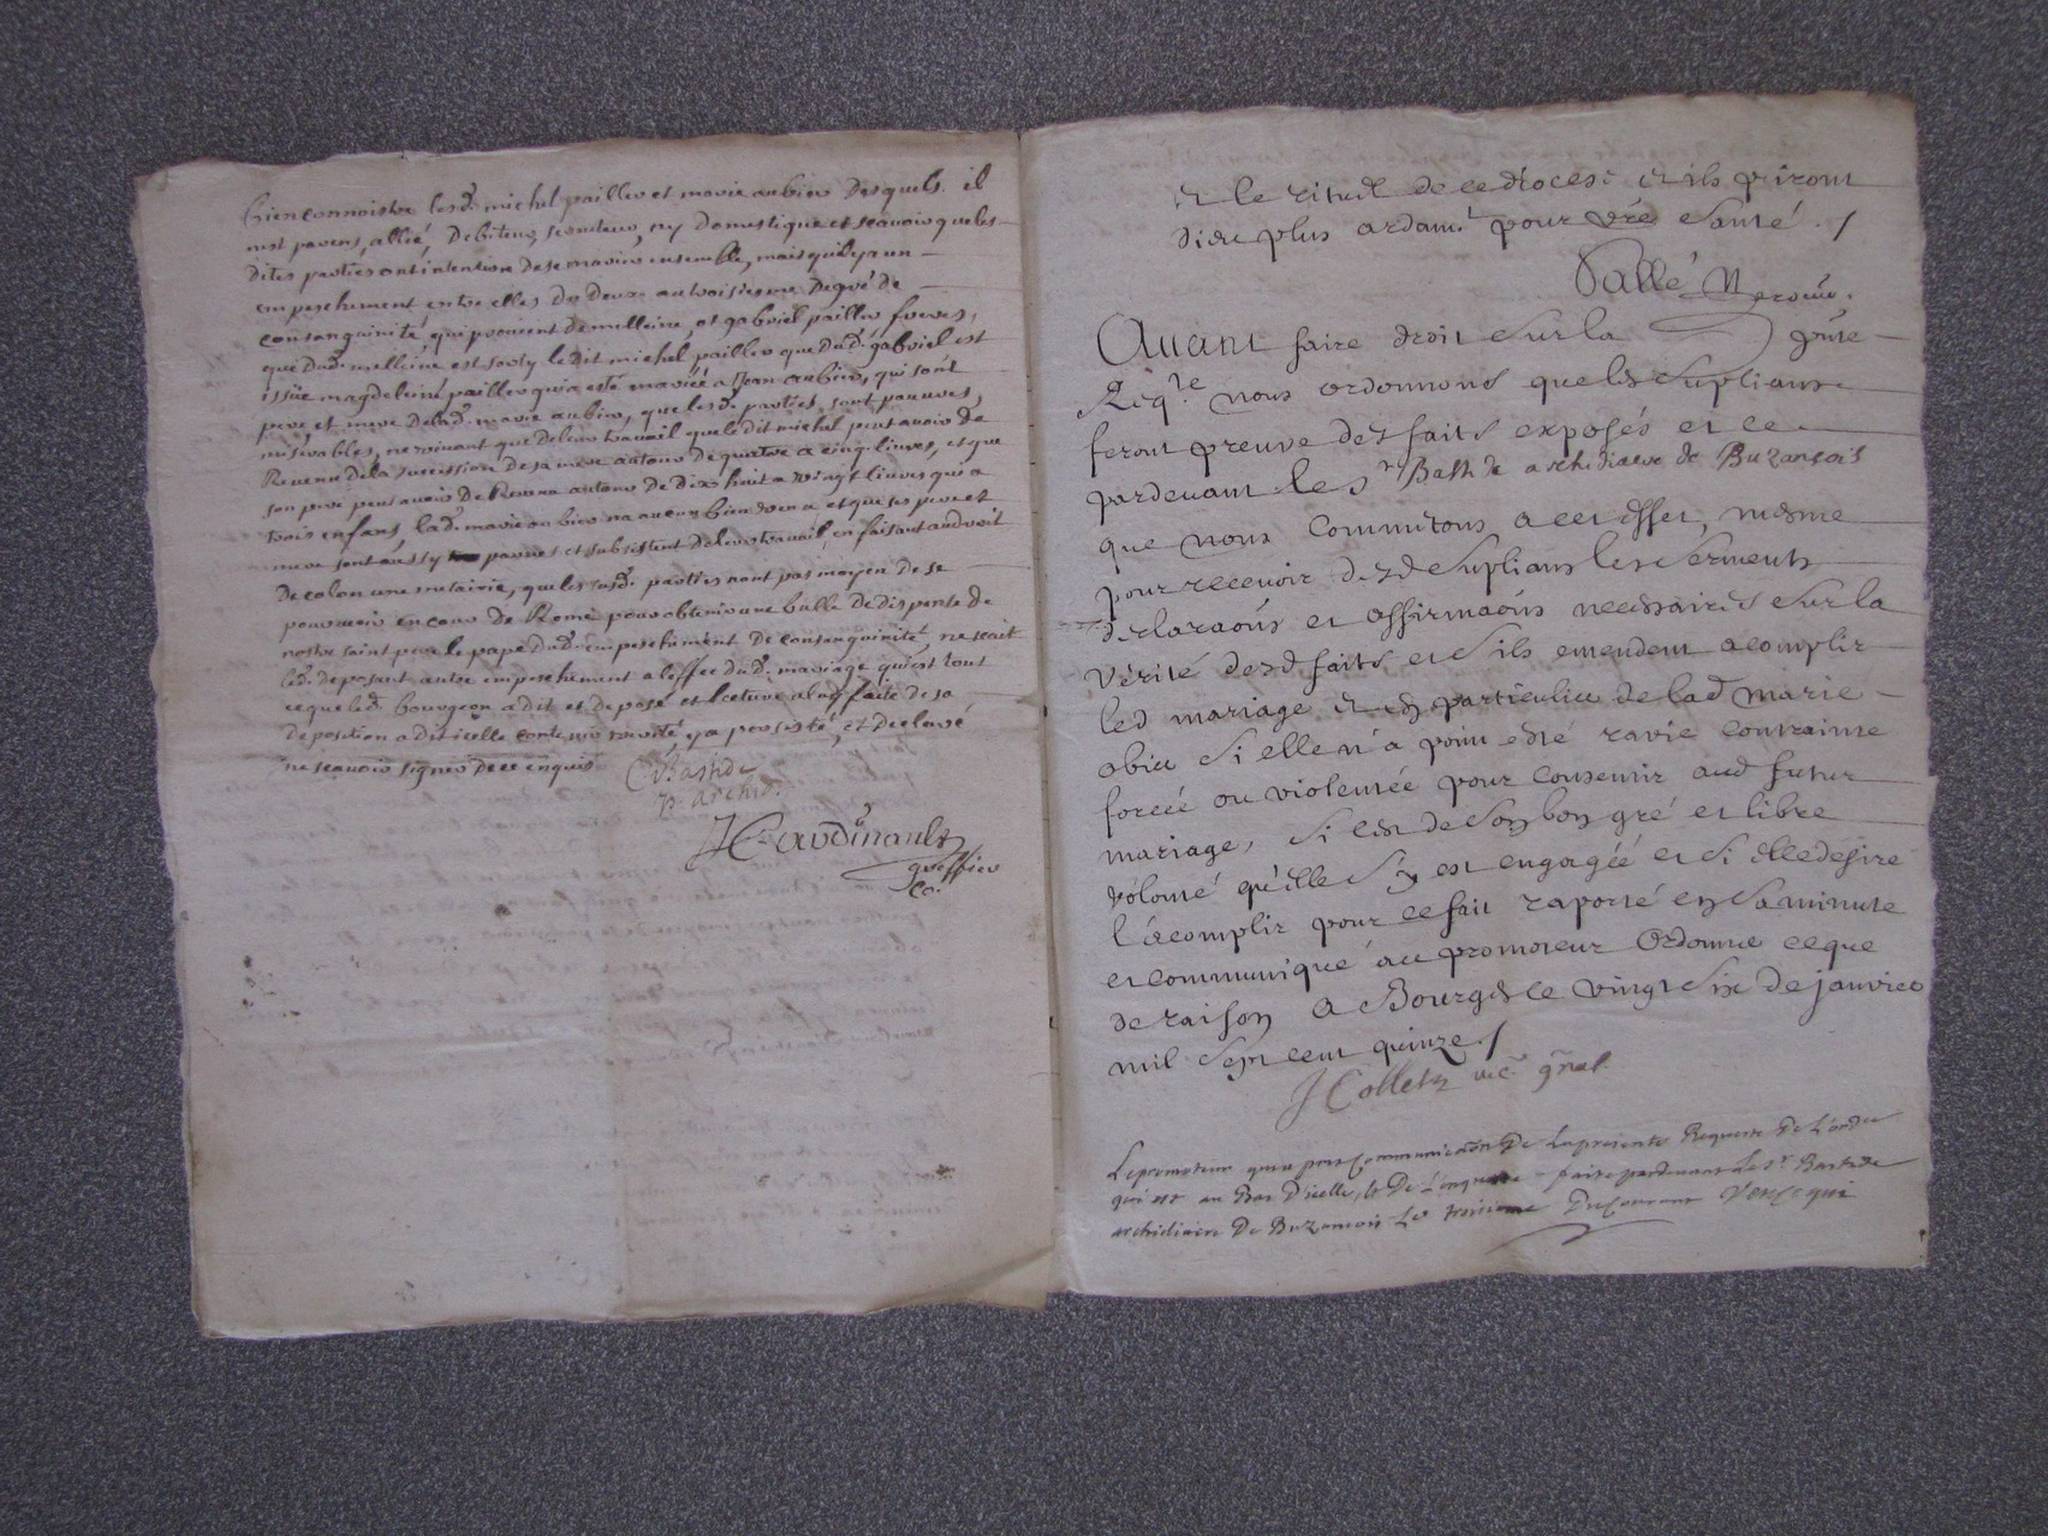 bien connoistre lesd. michel pailler et marie aubier desquels il
nest parens, allié, debiteur, serviteur, ny domestique et scauoir que les
dites parties ont intention de se marier ensemble, mais quil y a un
empeschement entre elles du deux au troisiesme degré de
consanguinité qui provient de et gabriel pailler freres,
que dud. est sorty ledit michel pailler que dud. gabriel est
issüe magdeleine pailler qui a esté mariéé a Jean aubier, qui sont
pere et mere delad. marie aubier, que lesd. parties sont pauures,
miserables, ne viuant que de leur trauail que ledit michel peut auoir de
Reuenu de la succession de sa mere autour de quatre a cinq liures, et que
son pere peut auoir de Reuenu autour de dix huit a vingt liures qui a
trois enfans, lad. marie aubier na aucun bien venu et que ses pere et
mere sont aussy pauures et subsistent de leur trauail en faisant audroit
de colon une metairie, que les susd. parties nont pas moyen de se
pouruoir en cour de Rome pour obtenir une bulle de dispense de
nostre saint pere le pape dud. empeschement de consanguinité, ne scait
led. deposant autre empeschement a leffec dud. mariage qui est tout
ce que led. bourgeon a dit et deposé et lecture a luy faite de sa
deposition a dit icelle contenir verité, y a persisté, et declaré
ne scauoir signer de ce enquis
CBastide
p. archid.
greffier
co.
et le rituel de ce diocese et ils priront
dieu plus ardamt pour vre santé ./
Vallé
Auant faire droit sur la
Reqte nous ordonnons que les suplians
feront preuve des faits exposés et ce
pardeuant le sr Bastide archidiacre de Buzançois
que nous commitons a cet effet, mesme
pour receuoir desd suplians les serments
declaraõns et affirmaõns necessaires sur la
vérité desd faits et s'ils entendent acomplir
led mariage et en particulier de lad marie
obier si elle n'a point esté ravie contrainte
forcéé ou violentée pour consentir aud futur
mariage, si c'est de son bon gré et libre
volonté qu'elle s'y est engagéé et si elle desire
l'acomplir pour ce fait raporté en sa minute
et communiqué au promoteur Ordonné ce que
de raison a Bourges ce vingt six de janvier
mil sept cent quinze ./
J Collet vic. gñal.
Le promoteur qui a pris communicaõn de la presente Requeste de L'ordre
qui est au Bas d'icelle, & De L'enqueste faite pardeuant Le Sr Bastide
archidiacre De Buzancois Le troisieme Du courant Veu ce qui